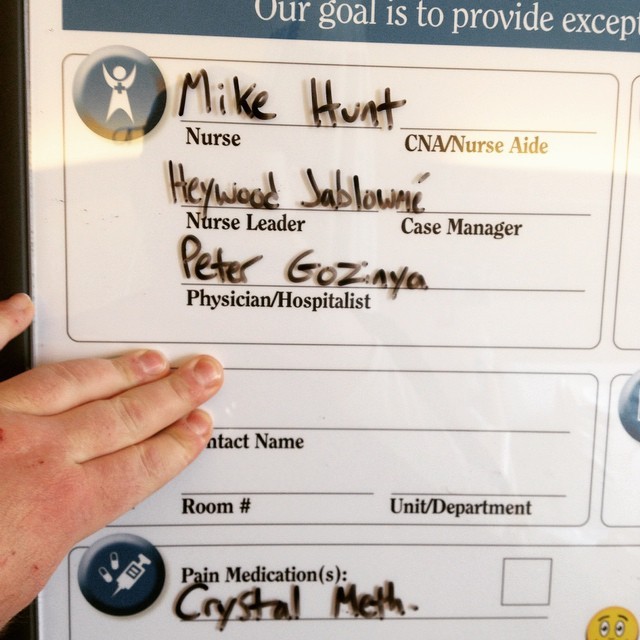 Our goal is to provide
Mike Hunt
Nurse CNA/Nurse Aide
Heywood Jablowmé
Nurse Leader Case Manager
Peter Gozinya
Physician/Hospitalist
Name
Room # Unit/Department
Pain Medication(s):
Crystal Meth.